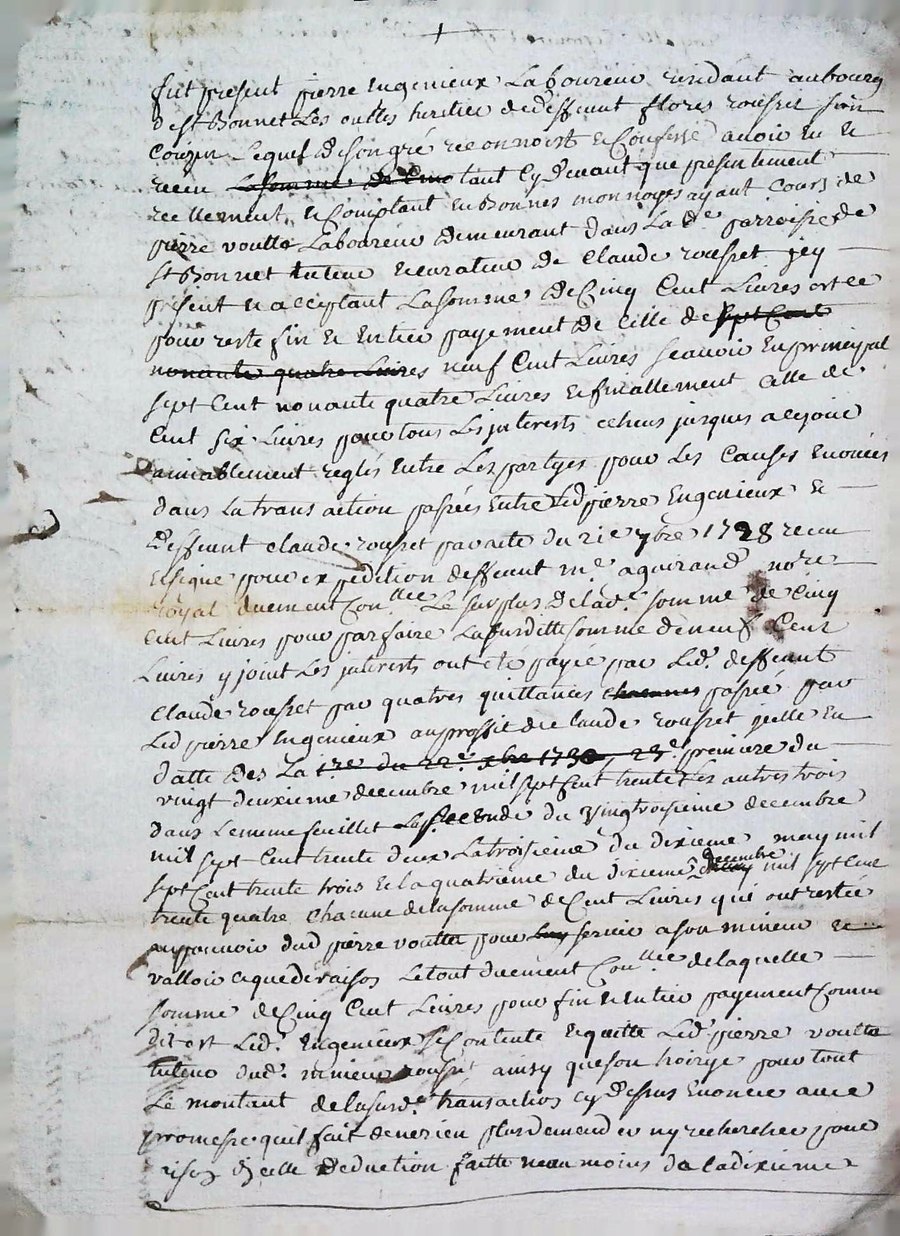 fut present pierre Engenieux Laboureur residant au bourg
de st Bonnet Les oulles heritier de deffeunt flores rouset son
Couzin Lequel de son gré reconnoist & Confesse avoir eu &
receu La somme de Cinq tant Cy devant que presentement
reellement, & Comptant En Bonnes monnoyes ayant Cours de
pierre voulta Laboureur demeurant dans La de parroisse de
st Bonnet tuteur & curateur de Claude rouset jcy
present & acceptant La somme de Cinq Cent Livres et ce
pour reste fin & Entier payement de Celle de sept Cent
nonante quatre Livres neuf Cent Livres scavoir En principal
sept Cent nonante quatre Livres & finallement Celle de
Cent six Livres pour tous Les jnterests echeus jusques a cejour
amiablement reglés Entre Les partyes pour Les Causes Enoncées
dans La transaction passée Entre Led pierre Engenieux &
deffeunt Claude rouset par acte du 21e 7bre 1728 receu
& signé pour expedition deffeunt me aguirand no.re
royal duement Con.llée Le surplus de lad. somme de Cinq
Cent Livres pour parfaire La susditte somme de neuf Cent
Livres y joint Les jnterests ont eté payée par Led. deffeunt
Claude rouset par quatres quittances chacunes passée par
Led pierre Engenieux au proffit du Claude rouset jcelle En
datte des La 1re du 22e xbre 1730, 23e premiere du
vingt deuxieme decembre mil sept Cent trente & Les autres trois
dans Le meme feuillet La seconde du vingtroisieme decembre
mil sept Cent trente deux La troisieme du dixieme may mil
sept Cent trente trois & La quatrieme du dixieme decembre mil sept Cent
trente quatre chacune de la somme de Cent Livres qui ont restée
au pouvoir dud pierre voulta pour Luy servir a son mineur &
valloir ce que de raison Le tout duement Con.llée de laquelle
somme de Cinq Cent Livres pour fin & Entier payement Comme
dit est Led. Engenieux se Contente & quitte Led. pierre voulta
tuteur dud. mineur rouset ainsy que son hoirye pour tout
Le montant de la susd.e transaction cy dessus Enoncée avec
promesse qu'il fait de ne rien plus demander ny rechercher pour
raison d'jcelle deduction faitte neanmoins de La dixieme